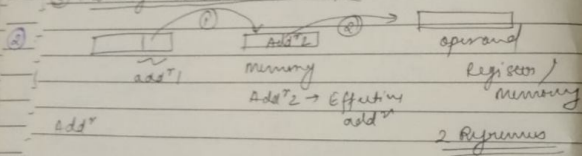 ②
①
②
Addr 2
operand
addr 1
memory
Register /
memory
Addr 2 → Effective
addr
Addr
2